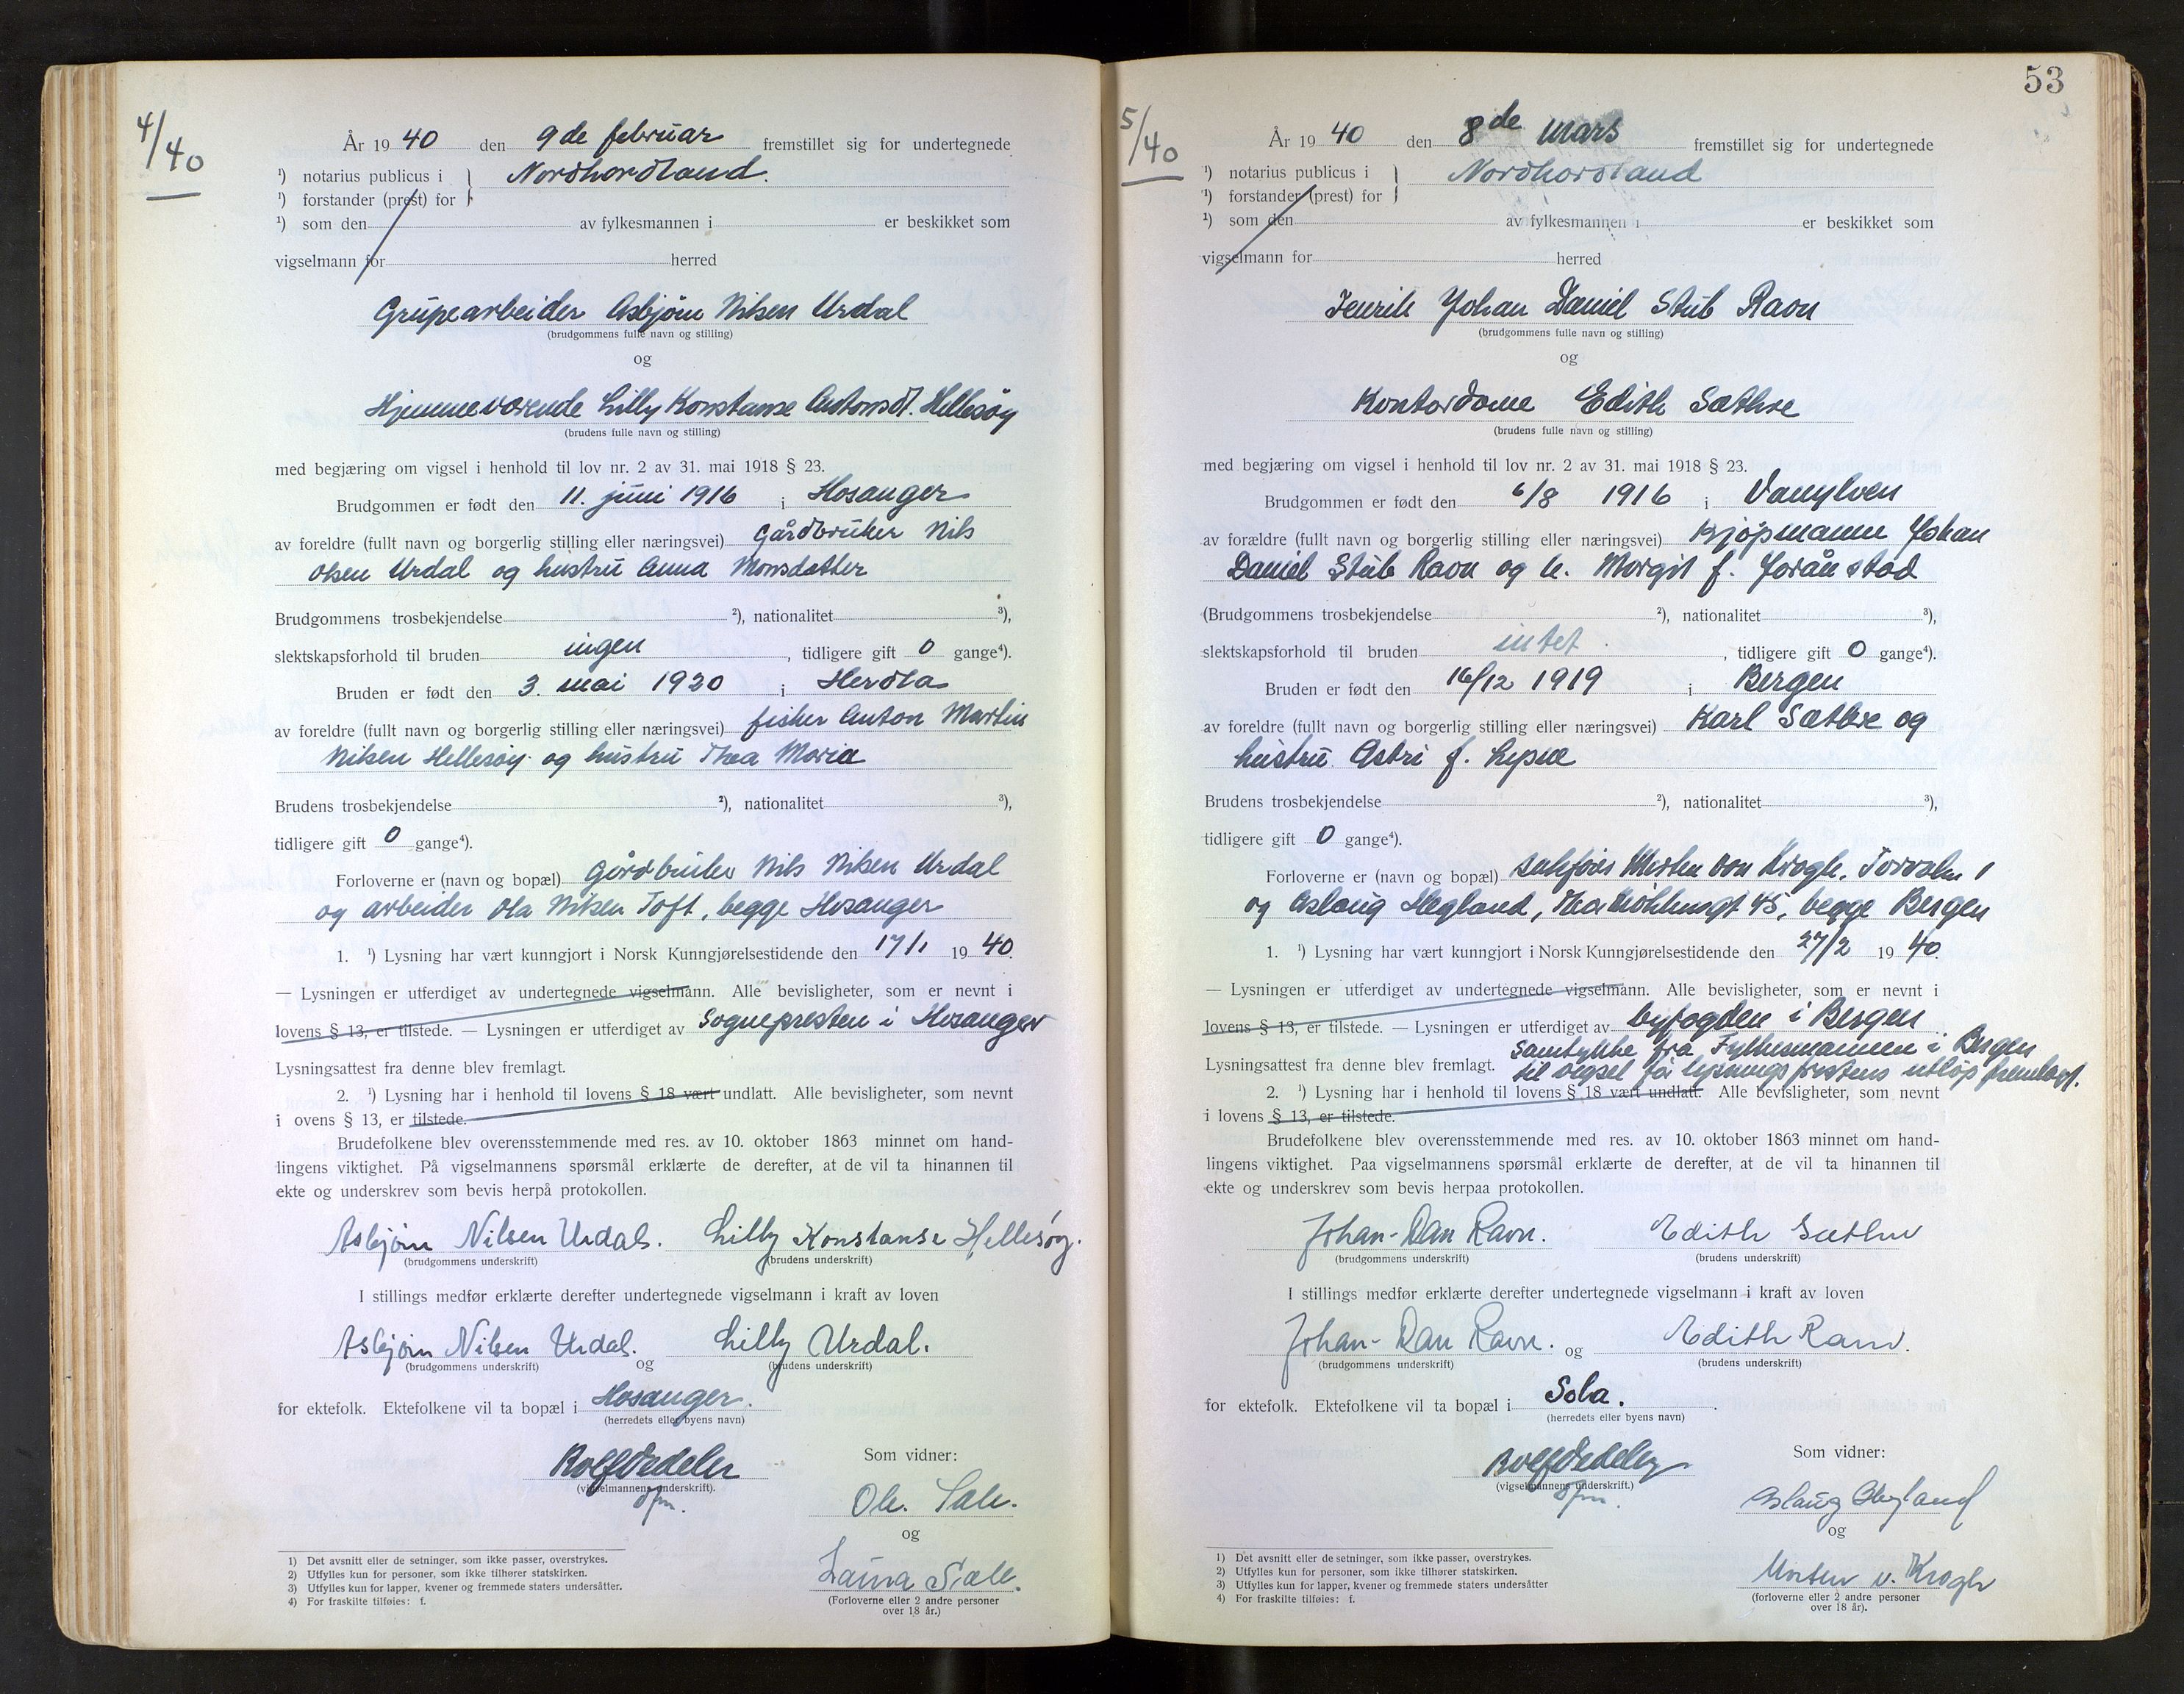 4/40
År 19 40 den 9de februar fremstillet sig for undertegnede
¹) notarius publicus i Nordhordland.
¹) forstander (prest) for
¹) som den av fylkesmannen i er beskikket som
vigselmann for herred
Grupearbeider Asbjørn Nilsen Urdal
(brudgommens fulle navn og stilling)
og
Hjemmeværende Lilly Konstanse Antonsdt. Hellesøy
(brudens fulle navn og stilling)
med begjæring om vigsel i henhold til lov nr. 2 av 31. mai 1918 § 23.
Brudgommen er født den 11. juni 1916 i Hosanger
av foreldre (fullt navn og borgerlig stilling eller næringsvei) Gårdbruker Nils
Olsen Urdal og hustru Anna Monsdatter
Brudgommens trosbekjendelse ²), nationalitet ³),
slektskapsforhold til bruden ingen , tidligere gift 0 gange⁴).
Bruden er født den 3. mai 1920 i Herdla
av foreldre (fullt navn og borgerlig stilling eller næringsvei) fisker Anton Martin
Nilsen Hellesøy og hustru Thea Maria
Brudens trosbekjendelse ²), nationalitet ³),
tidligere gift 0 gange⁴).
Forloverne er (navn og bopæl) Gårdbruker Nils Nilsen Urdal
og arbeider Ola Nilsen Toft, begge Hosanger
1. ¹) Lysning har vært kunngjort i Norsk Kunngjørelsestidende den 17/1 19 40.
— Lysningen er utferdiget av undertegnede vigselmann. Alle bevisligheter, som er nevnt i
lovens § 13, er tilstede. — Lysningen er utferdiget av Sognepresten i Hosanger
Lysningsattest fra denne blev fremlagt.
2. ¹) Lysning har i henhold til lovens § 18 vært undlatt. Alle bevisligheter, som nevnt
i ovens § 13, er tilstede.
Brudefolkene blev overensstemmende med res. av 10. oktober 1863 minnet om hand-
lingens viktighet. På vigselmannens spørsmål erklærte de derefter, at de vil ta hinannen til
ekte og underskrev som bevis herpå protokollen.
Asbjørn Nilsen Urdal. Lilly Konstanse Hellesøy.
(brudgommens underskrift) (brudens underskrift)
I stillings medfør erklærte derefter undertegnede vigselmann i kraft av loven
Asbjørn Nilsen Urdal. og Lilly Urdal.
(brudgommens underskrift) (brudens underskrift)
for ektefolk. Ektefolkene vil ta bopæl i Hosanger.
(herredets eller byens navn)
Som vidner:
(vigselmannens underskrift).
Ole Sale.
og
Laura Sale.
(Forloverne eller 2 andre personer
over 18 år.)
1) Det avsnitt eller de setninger, som ikke passer, overstrykes.
2) Utfylles kun for personer, som ikke tilhører statskirken.
3) Utfylles kun for lapper, kvener og fremmede staters undersåtter.
4) For fraskilte tilføies: f.
53
5/40
År 19 40 den 8de mars fremstillet sig for undertegnede
¹) notarius publicus i Nordhordland
¹) forstander (prest) for
¹) som den av fylkesmannen i er beskikket som
vigselmann for herred
Johan Daniel Stub Ravn
(brudgommens fulle navn og stilling)
og
Kontordame Edith Sæthre
(brudens fulle navn og stilling)
med begjæring om vigsel i henhold til lov nr. 2 av 31. mai 1918 § 23.
Brudgommen er født den 6/8 1916 i Vanylven
av forældre (fullt navn og borgerlig stilling eller næringsvei) Kjøpmann Johan
Daniel Stub Ravn og h. Margit f. Joranstad
(Brudgommens trosbekjendelse ²), nationalitet ³),
slektskapsforhold til bruden intet , tidligere gift 0 gange⁴).
Bruden er født den 16/12 1919 i Bergen
av foreldre (fullt navn og borgerlig stilling eller næringsvei) Karl Sæthre og
hustru Astri f. Lepsø
Brudens trosbekjendelse ²), nationalitet ³),
tidligere gift 0 gange⁴).
Forloverne er (navn og bopæl) sakfører Morten von Krogh,
og Aslaug Hegland, 45, begge Bergen
1. ¹) Lysning har vært kunngjort i Norsk Kunngjørelsestidende den 27/2 19 40.
— Lysningen er utferdiget av undertegnede vigselmann. Alle bevisligheter, som er nevnt i
lovens § 13, er tilstede. — Lysningen er utferdiget av byfogden i Bergen
Lysningsattest fra denne blev fremlagt. Samtykke fra Fylkesmannen i Bergen
til vigsel før lysningsfristens utløp fremlagt.
2. ¹) Lysning har i henhold til lovens § 18 vært undlatt. Alle bevisligheter, som nevnt
i lovens § 13, er tilstede.
Brudefolkene blev overensstemmende med res. av 10. oktober 1863 minnet om hand-
lingens viktighet. Paa vigselmannens spørsmål erklærte de derefter, at de vil ta hinannen til
ekte og underskrev som bevis herpaa protokollen.
Johan-Dan Ravn. Edith Sæthre
(brudgommens underskrift) (brudens underskrift)
I stillings medfør erklærte derefter undertegnede vigselmann i kraft av loven
Johan-Dan Ravn. og Edith Ravn.
(brudgommens underskrift) (brudens underskrift)
for ektefolk. Ektefolkene vil ta bopæl i Sola.
(herredets eller byens navn)
Som vidner:
(vigselmannens underskrift.)
Aslaug Hegland
og
Morten v. Krogh
(forloverne eller 2 andre personer
over 18 år).
1) Det avsnitt eller de setninger, som ikke passer, overstrykes.
2) Utfylles kun for personer, som ikke tilhører statskirken.
3) Utfylles kun for lapper, kvener og fremmede staters undersåtter
4) For fraskilte tilføies: f.